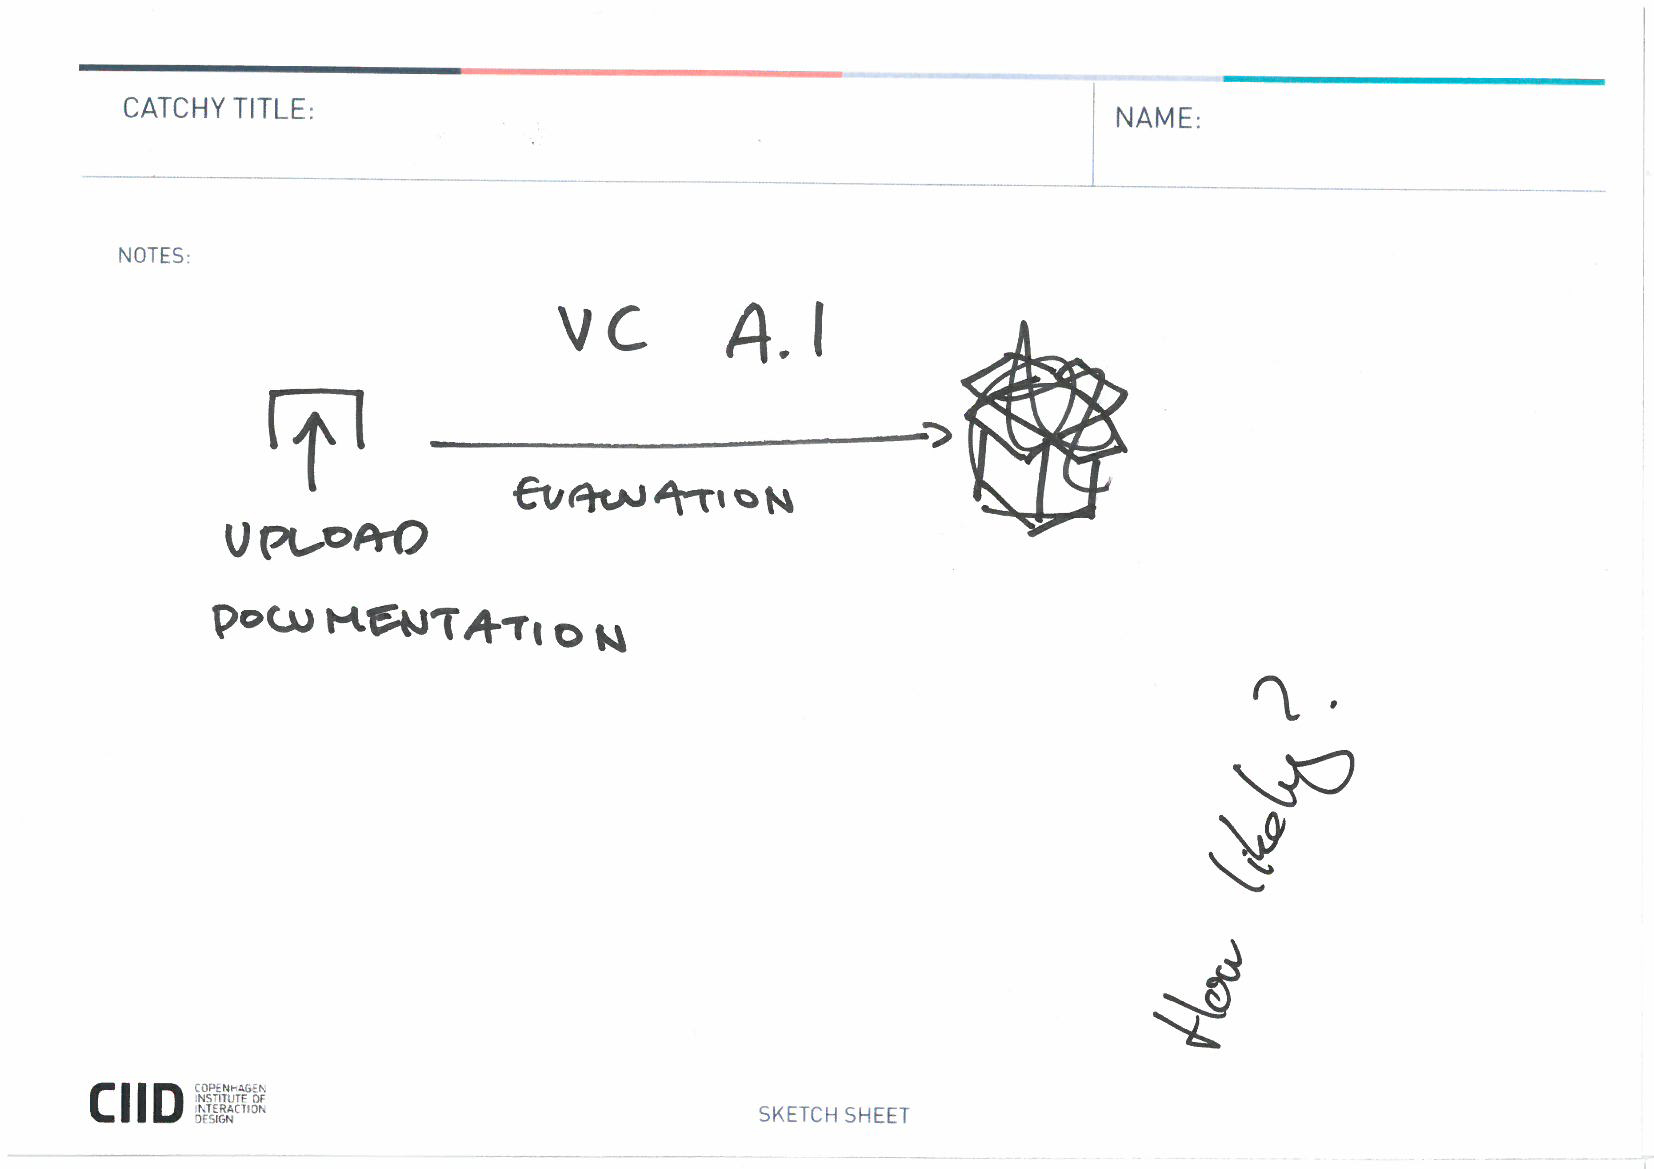 CATCHY TITLE:
NAME:
NOTES:
VC A.I
EVALUATION
UPLOAD
DOCUMENTATION
How likely?
CIID
COPENHAGEN
INSTITUTE OF
INTERACTION
DESIGN
SKETCH SHEET